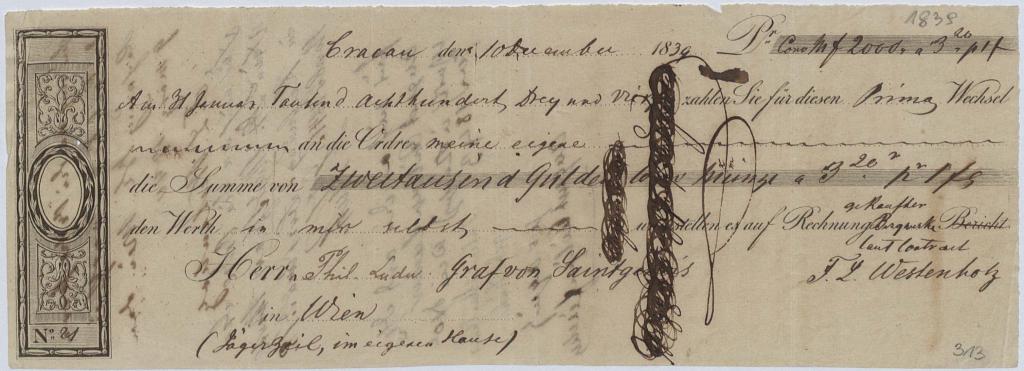 1838
Cracau den 10 December 1839 Pr. Conv. Mf 2000, a 3 20r p 1 f
Am 31 Januar Tausend Achthundert Drey und zahlen Sie für diesen Prima Wechsel
an die Ordre meine eigene
die Summe von Zweitausend Gulden münze a 3 20r pr 1 f
den Werth in mir selbst und stellen es auf Rechnung gekaufter Bergwerke Bericht
laut Contract
Herrn Phil. Ludw. Graf von Saintgenois F. L. Westenholz
in Wien
(Jägerzeil, im eigenen Hause)
No. 21
313